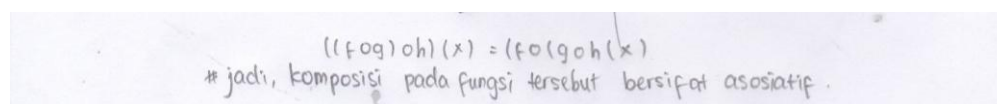 ((fog)oh)(x) = (fo(goh(x)
# jadi, komposisi pada fungsi tersebut bersifat asosiatif.